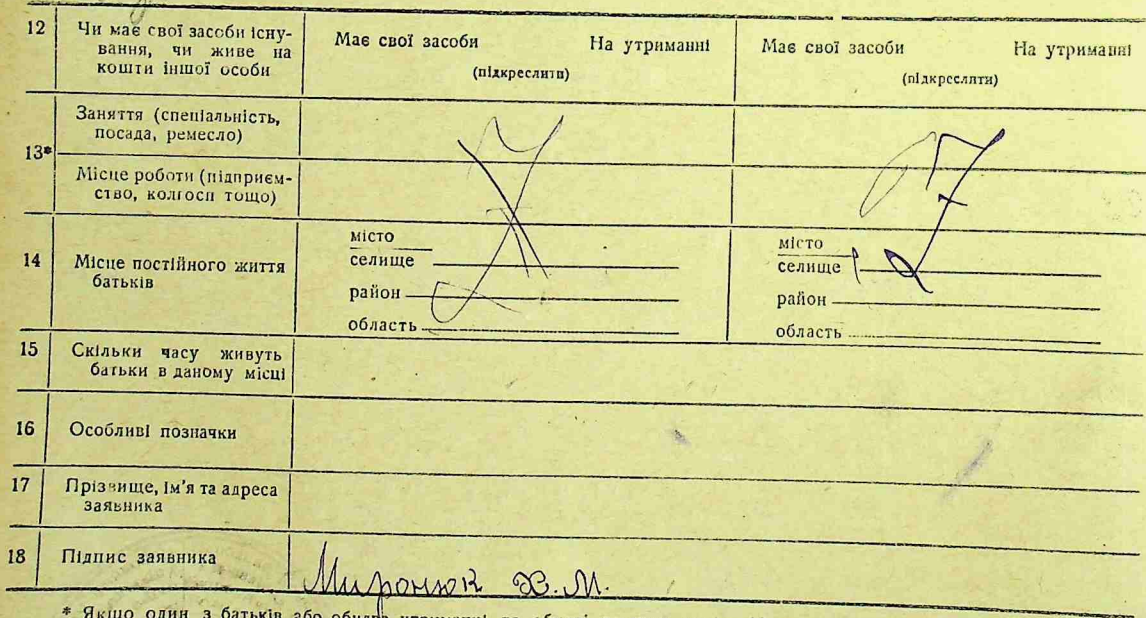 12 Чи має свої засоби існу-
вання, чи живе на
кошти іншої особи
Має свої засоби На утриманні
(підкреслити)
Має свої засоби На утриманні
(підкреслити)
13*
Заняття (спеціальність,
посада, ремесло)
Місце роботи (підприєм-
ство, колгосп тощо)
14 Місце постійного життя
батьків
місто
селище
район
область
місто
селище
район
область
15 Скільки часу живуть
батьки в даному місці
16 Особливі позначки
17 Прізвище, ім'я та адреса
заявника
18 Підпис заявника
Миронюк Х.М.
* Якщо один з батьків або обидва